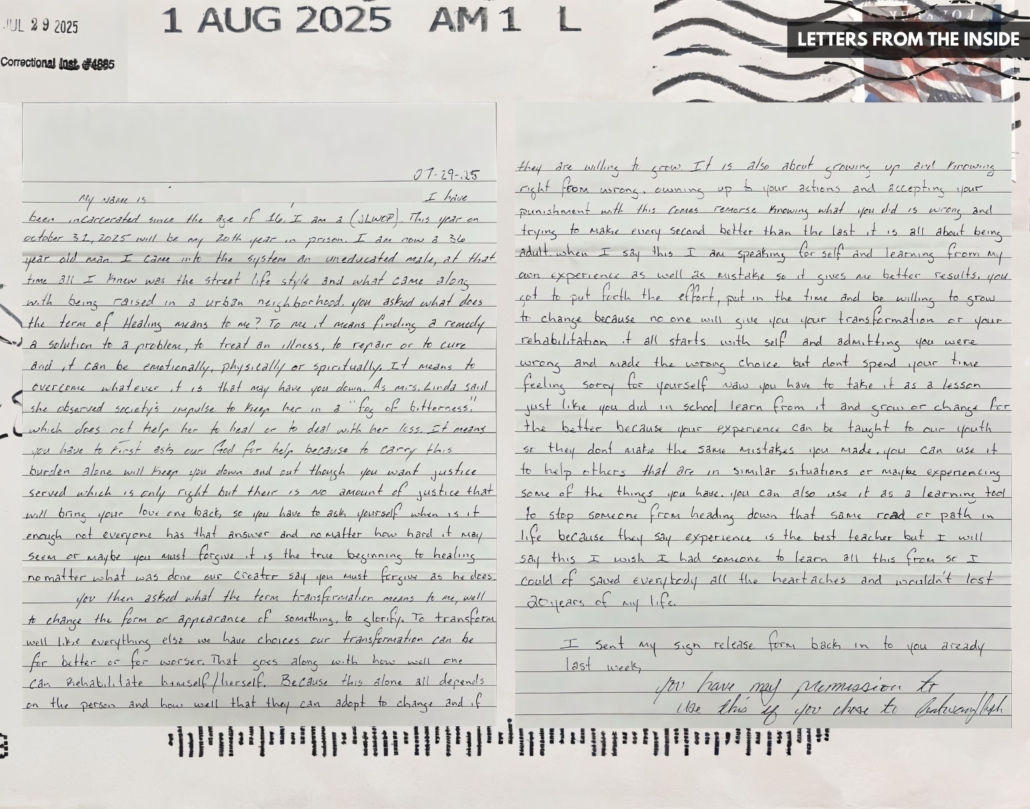 JUL 29 2025
Correctional Inst. #4885
1 AUG 2025 AM 1 L
LETTERS FROM THE INSIDE
07-29-25
My name is , I have
been incarcerated since the age of 16. I am a (JLWOP). This year on
october 31, 2025 will be my 20th year in prison. I am now a 36
year old man. I came into the system an uneducated male, at that
time all I knew was the street life style and what came along
with being raised in a urban neighborhood. you asked what does
the term of Healing means to me? To me it means finding a remedy
a solution to a problem, to treat an illness, to repair or to cure
and it can be emotionally, physically or spiritually. It means to
overcome whatever it is that may have you down. As ms. Linda said
she observed society's impulse to keep her in a "fog of bitterness."
which does not help her to heal or to deal with her loss. It means
you have to First ask our God for help because to carry this
burden alone will keep you down and out though you want justice
served which is only right but their is no amount of justice that
will bring your love one back, so you have to ask yourself when is it
enough not everyone has that answer and no matter how hard it may
seem or maybe you must forgive it is the true beginning to healing
no matter what was done our Creator say you must forgive as he does.
you then asked what the term transformation means to me, well
to change the form or appearance of something, to glorify. To transform
well like everything else we have choices our transformation can be
for better or for worser. That goes along with how well one
can Rehabilitate himself/herself. Because this alone all depends
on the person and how well that they can adopt to change and if
they are willing to grow. It is also about growing up and knowing
right from wrong, owning up to your actions and accepting your
punishment with this comes remorse knowing what you did is wrong and
trying to make every second better than the last it is all about being
adult. when I say this I am speaking for self and learning from my
own experience as well as mistake so it gives me better results. you
got to put forth the effort, put in the time and be willing to grow
to change because no one will give you your transformation or your
rehabilitation it all starts with self and admitting you were
wrong and made the wrong choice but dont spend your time
feeling sorry for yourself now you have to take it as a lesson
just like you did in school learn from it and grow or change for
the better because your experience can be taught to our youth
so they dont make the same mistakes you made. you can use it
to help others that are in similar situations or maybe experiencing
some of the things you have. you can also use it as a learning tool
to stop someone from heading down that same road or path in
life because they say experience is the best teacher but I will
say this I wish I had someone to learn all this from so I
could of saved everybody all the heartaches and wouldn't lost
20 years of my life.
I sent my sign release form back in to you already
last week,
you have my permission to
use this if you chose to